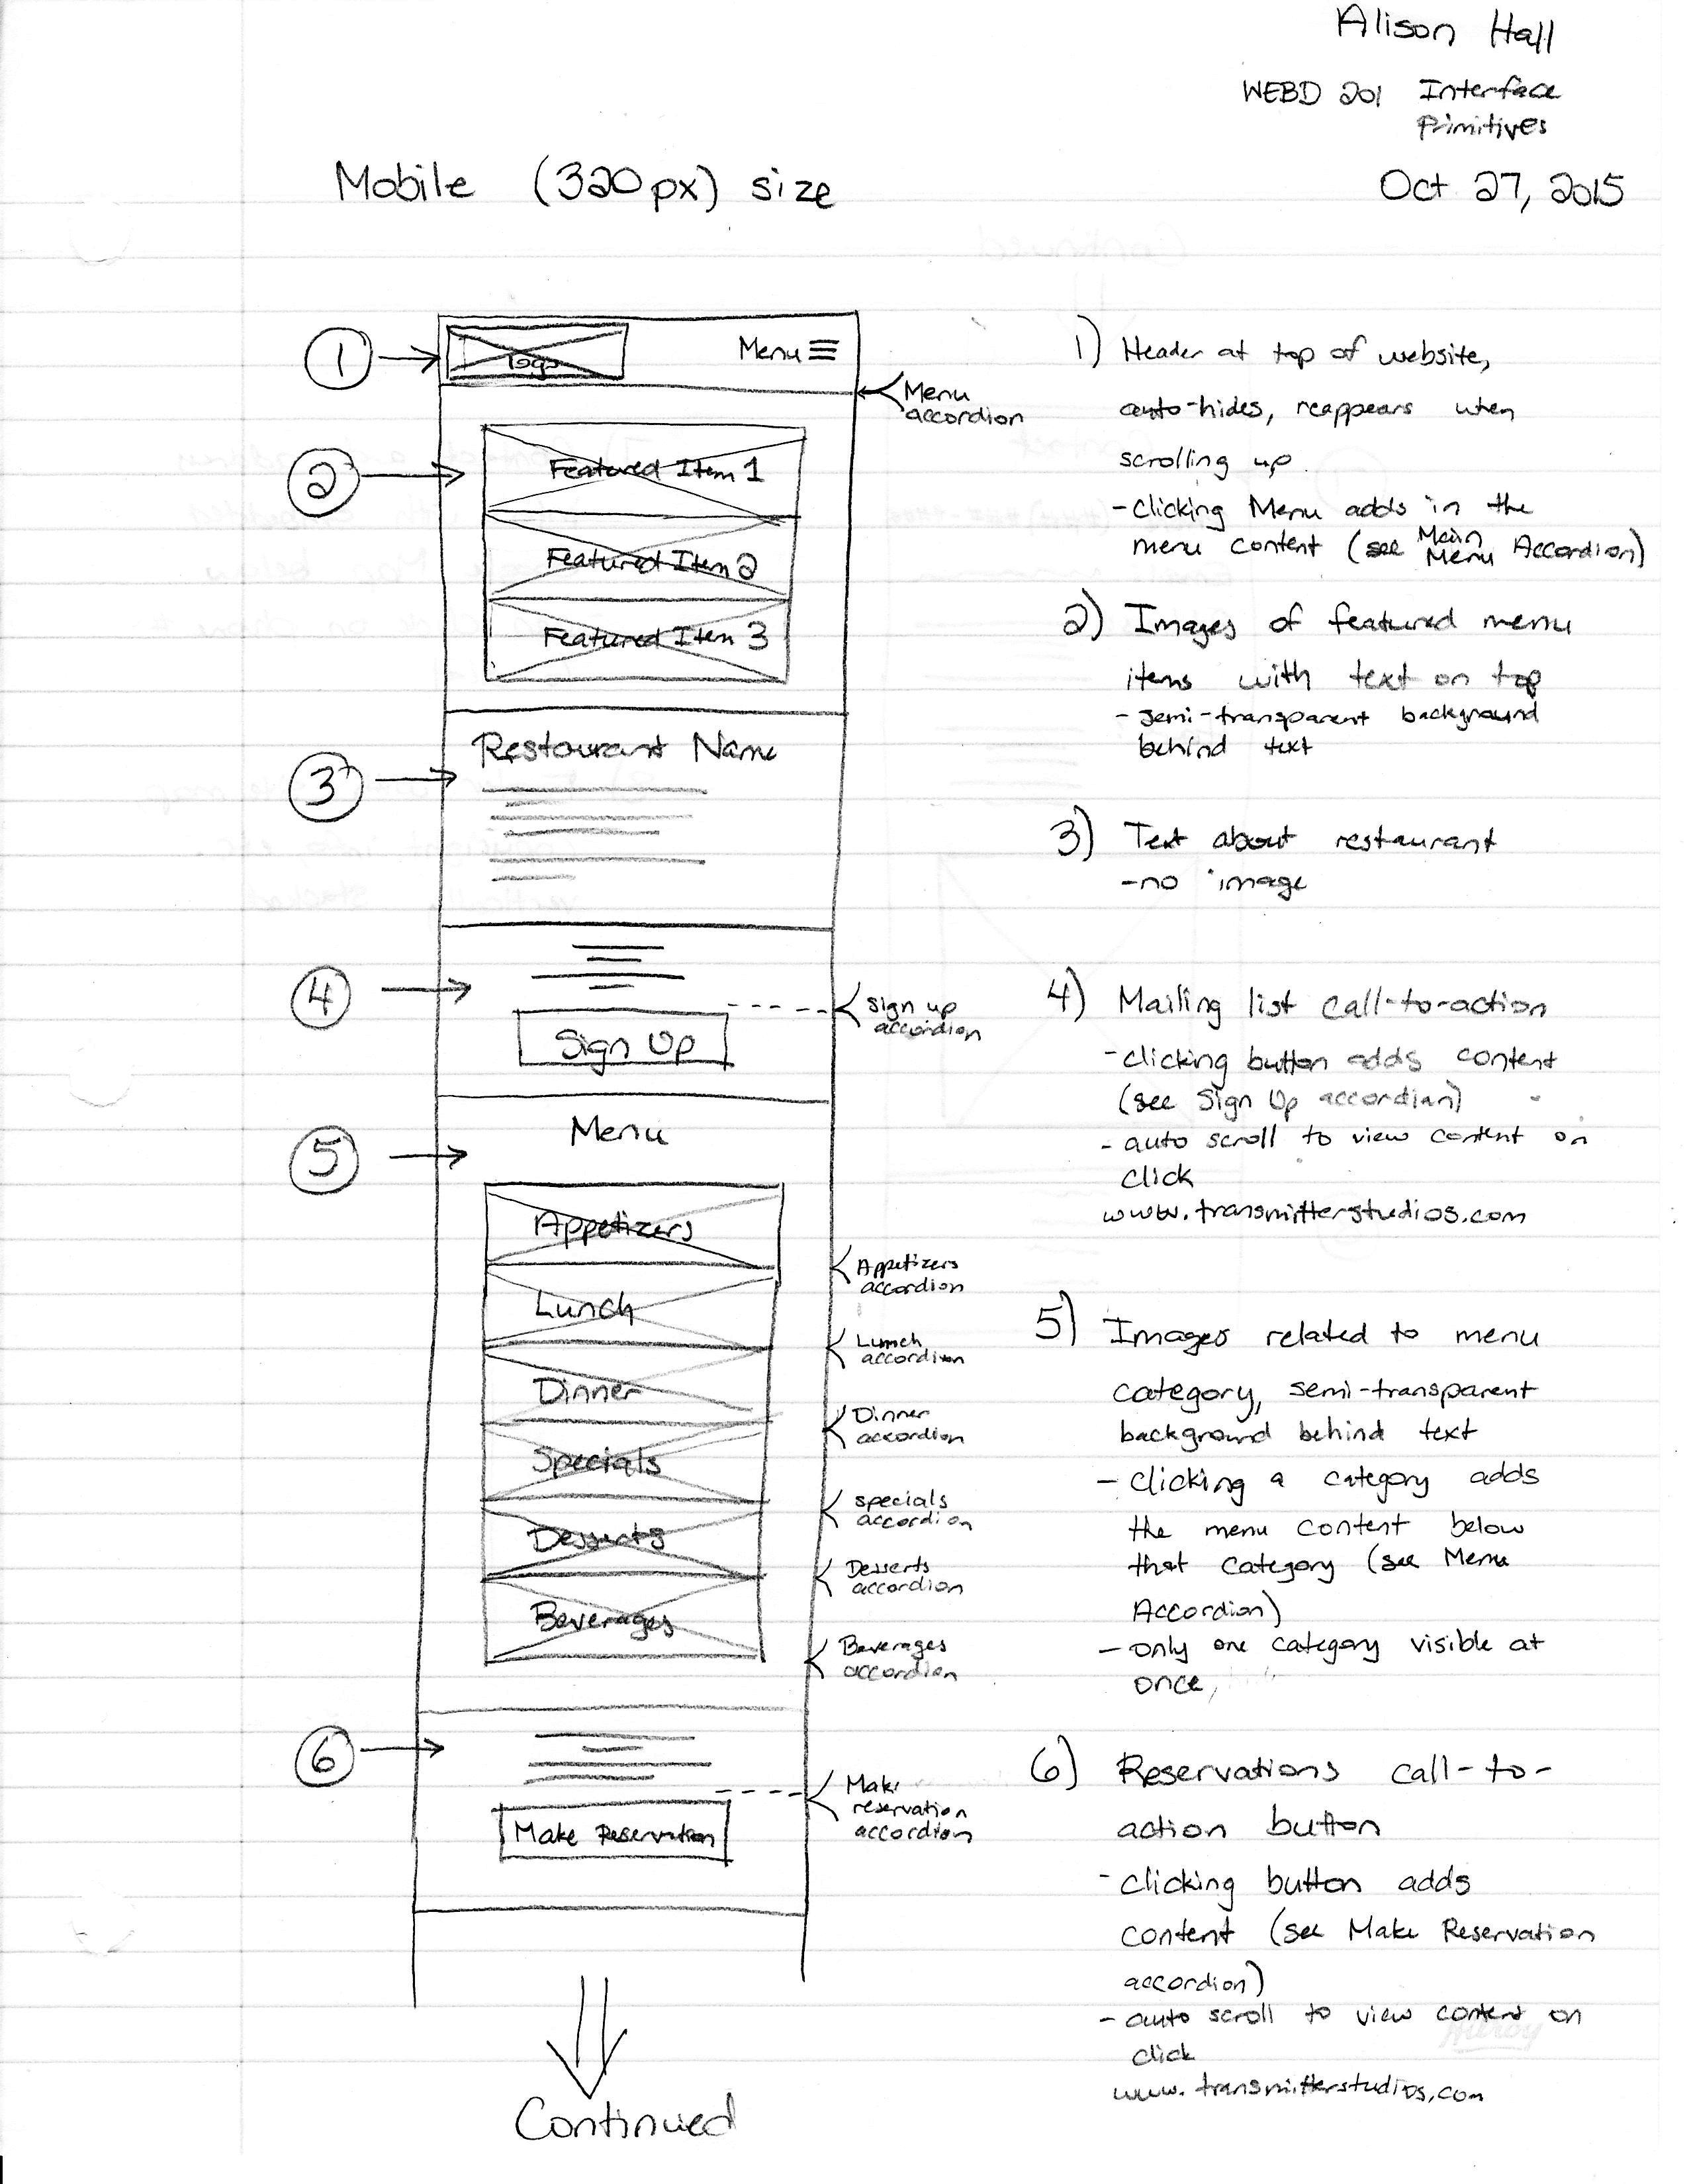 Alison Hall
WEBD 201 Interface
Primitives
Mobile (320px) size
Oct 27, 2015
1
logo
Menu
Menu
accordion
2
Featured Item 1
Featured Item 2
Featured Item 3
3
Restaurant Name
4
Sign Up
sign up
accordion
5
Menu
Appetizers
Lunch
Dinner
Specials
Desserts
Beverages
Appetizers
accordion
Lunch
accordion
Dinner
accordion
specials
accordion
Desserts
accordion
Beverages
accordion
6
Make Reservation
Make
reservation
accordion
Continued
1) Header at top of website,
auto-hides, reappears when
scrolling up.
- clicking Menu adds in the
menu content (see Main
Menu Accordion)
2) Images of featured menu
items with text on top
- semi-transparent background
behind text
3) Text about restaurant
- no image
4) Mailing list call-to-action
- clicking button adds content
(see Sign Up accordian)
- auto scroll to view content on
click
www.transmitterstudios.com
5) Images related to menu
category, semi-transparent
background behind text
- clicking a category adds
the menu content below
that category (see Menu
Accordion)
- only one category visible at
once,
6) Reservations call-to-
action button
- clicking button adds
content (see Make Reservation
accordion)
- auto scroll to view content on
click
www.transmitterstudios.com
Hilroy